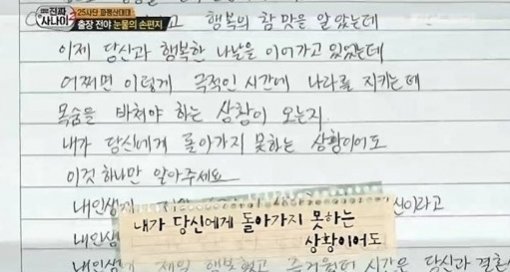 진짜 사나이
25사단 파평산대대
출장 전야 눈물의 손편지
행복의 참 맛을 알았는데
이제 당신과 행복한 나날을 이어가고 있었는데
어쩌면 이렇게 극적인 시간에 나라를 지키는데
목숨을 바쳐야 하는 상황이 오는지.
내가 당신에게 돌아가지 못하는 상황이어도
이것 하나만 알아주세요
내 인생
내 인생
내가 당신에게 돌아가지 못하는
상황이어도
제일 행복했고 즐거웠던 시간은 당신과 결혼